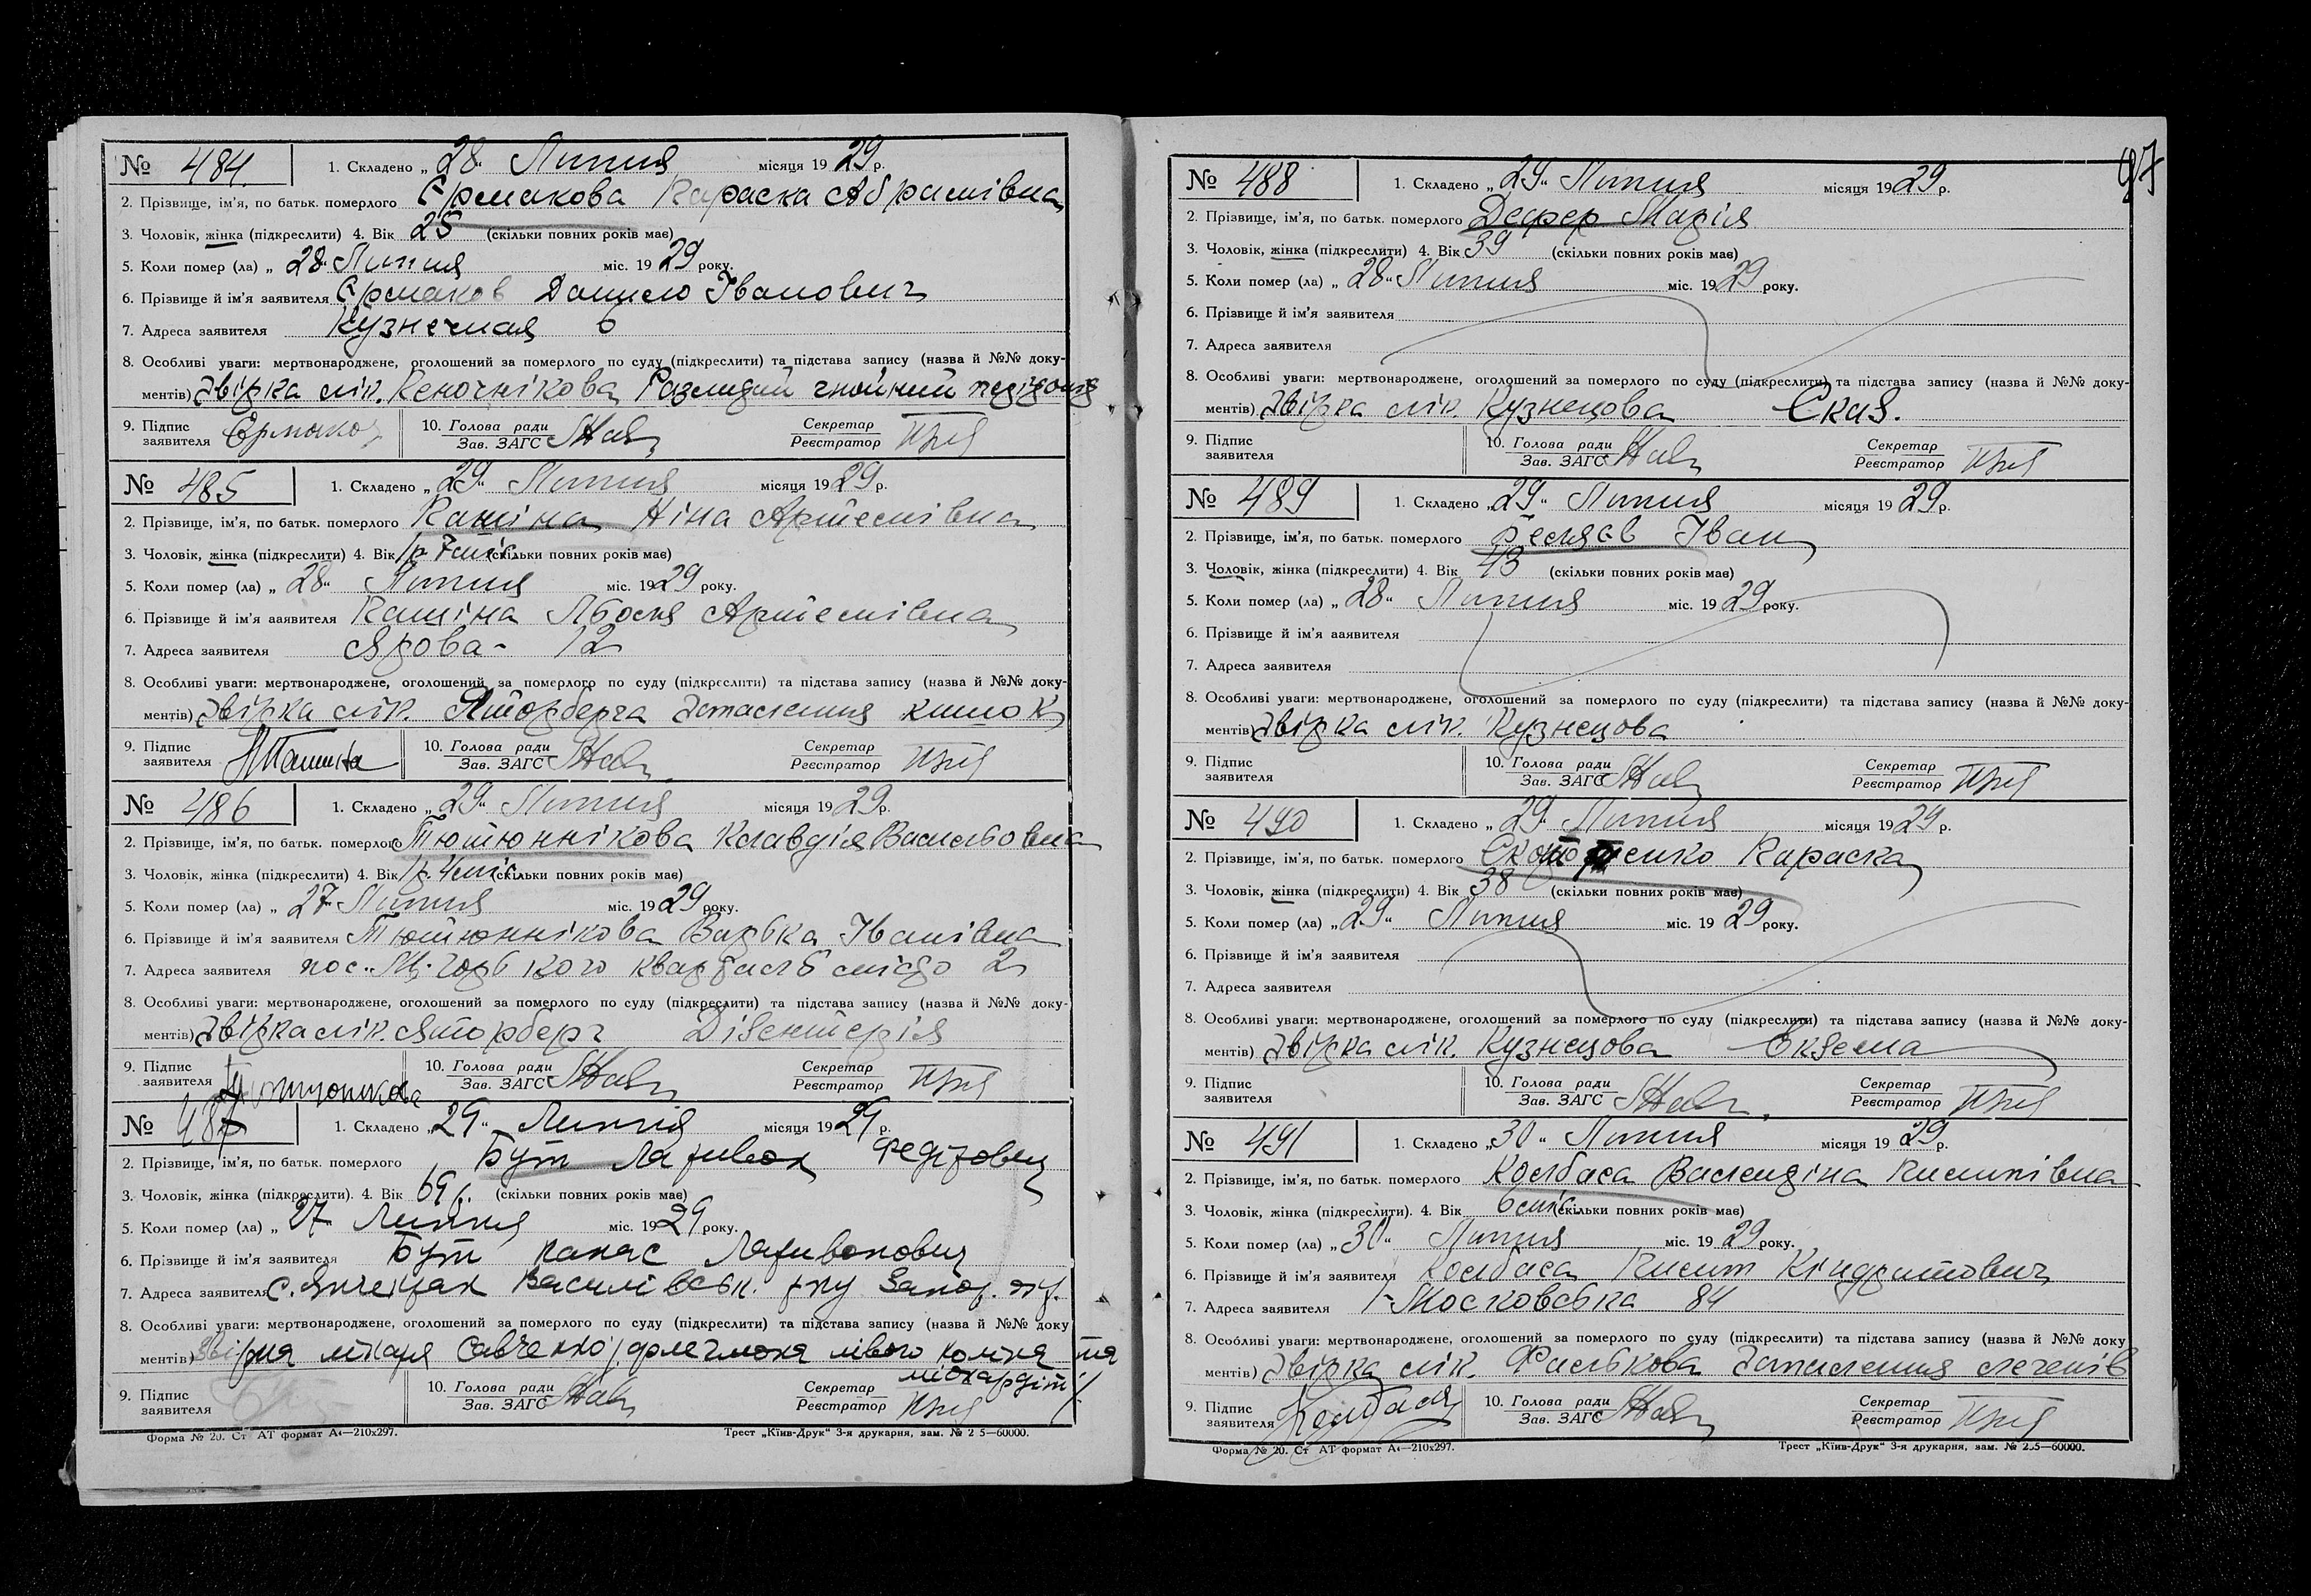 № 484. 1. Складено „28“ Липня місяця 1929 р.
2. Прізвище, ім'я, по батьк. померлого Єрмакова Параска Абрамівна
3. Чоловік, жінка (підкреслити) 4. Вік 25 (скільки повних років має)
5. Коли помер (ла) „28“ Липня міс. 1929 року.
6. Прізвище й ім'я заявителя Єрмаков Данило Іванович
7. Адреса заявителя Кузнечная 6
8. Особливі уваги: мертвонароджене, оголошений за померлого по суду (підкреслити) та підстава запису (назва й №№ доку-
ментів) Звірка лік. гнойний
9. Підпис заявителя Єрмаков 10. Голова ради Зав. ЗАГС Секретар Реєстратор
№ 485 1. Складено „29“ Липня місяця 1929 р.
2. Прізвище, ім'я, по батьк. померлого Кашіна Ніна Артемівна
3. Чоловік, жінка (підкреслити) 4. Вік 1 р. 7 міс. (скільки повних років має)
5. Коли помер (ла) „28“ Липня міс. 1929 року.
6. Прізвище й ім'я заявителя Кашіна Артемівна
7. Адреса заявителя Ярова - 12
8. Особливі уваги: мертвонароджене, оголошений за померлого по суду (підкреслити) та підстава запису (назва й №№ доку-
ментів) Звірка лік. Запалення кишок
9. Підпис заявителя 10. Голова ради Зав. ЗАГС Секретар Реєстратор
№ 486 1. Складено „29“ Липня місяця 1929 р.
2. Прізвище, ім'я, по батьк. померлого Тютюннікова Клавдія Васильовна
3. Чоловік, жінка (підкреслити) 4. Вік 1 р. 4 міс. (скільки повних років має)
5. Коли помер (ла) „27“ Липня міс. 1929 року.
6. Прізвище й ім'я заявителя Тютюннікова Варька Іванівна
7. Адреса заявителя пос. М. Горького квартал 5 місцо 2
8. Особливі уваги: мертвонароджене, оголошений за померлого по суду (підкреслити) та підстава запису (назва й №№ доку-
ментів) Звірка лік. Дізентерія
9. Підпис заявителя 10. Голова ради Зав. ЗАГС Секретар Реєстратор
№ 487 1. Складено „29“ Липня місяця 1929 р.
2. Прізвище, ім'я, по батьк. померлого Бут Ларивон Федорович
3. Чоловік, жінка (підкреслити). 4. Вік 69 р. (скільки повних років має)
5. Коли помер (ла) „27 Липня міс. 1929 року.
6. Прізвище й ім'я заявителя Бут Панас Ларивонович
7. Адреса заявителя с. Янчекрак Василівськ. р-ну Запор. окр.
8. Особливі уваги: мертвонароджене, оголошений за померлого по суду (підкреслити) та підстава запису (назва й №№ доку
ментів) лікаря Савченко /флегмона лівого коліна та
міокардіт/
9. Підпис заявителя 10. Голова ради Зав. ЗАГС Секретар Реєстратор
Форма № 20. Ст АТ формат А4—210x297. Трест „Київ-Друк“ 3-я друкарня, зам. № 2 5—60000.
97
№ 488 1. Складено „29“ Липня місяця 1929 р.
2. Прізвище, ім'я, по батьк. померлого Марія
3. Чоловік, жінка (підкреслити) 4. Вік 39 (скільки повних років має)
5. Коли помер (ла) „28“ Липня міс. 1929 року.
6. Прізвище й ім'я заявителя
7. Адреса заявителя
8. Особливі уваги: мертвонароджене, оголошений за померлого по суду (підкреслити) та підстава запису (назва й №№ доку-
ментів) Звірка лік. Кузнецова
9. Підпис заявителя 10. Голова ради Зав. ЗАГС Секретар Реєстратор
№ 489 1. Складено „29“ Липня місяця 1929 р.
2. Прізвище, ім'я, по батьк. померлого Іван
3. Чоловік, жінка (підкреслити) 4. Вік 43 (скільки повних років має)
5. Коли помер (ла) „28“ Липня міс. 1929 року.
6. Прізвище й ім'я заявителя
7. Адреса заявителя
8. Особливі уваги: мертвонароджене, оголошений за померлого по суду (підкреслити) та підстава запису (назва й №№ доку-
ментів) Звірка лік. Кузнецова
9. Підпис заявителя 10. Голова ради Зав. ЗАГС Секретар Реєстратор
№ 490 1. Складено „29“ Липня місяця 1929 р.
2. Прізвище, ім'я, по батьк. померлого Параска
3. Чоловік, жінка (підкреслити) 4. Вік 38 (скільки повних років має)
5. Коли помер (ла) „29“ Липня міс. 1929 року.
6. Прізвище й ім'я заявителя
7. Адреса заявителя
8. Особливі уваги: мертвонароджене, оголошений за померлого по суду (підкреслити) та підстава запису (назва й №№ доку-
ментів) Звірка лік. Кузнецова Екзема
9. Підпис заявителя 10. Голова ради Зав. ЗАГС Секретар Реєстратор
№ 491 1. Складено „30“ Липня місяця 1929 р.
2. Прізвище, ім'я, по батьк. померлого Колбаса Валендіна Пилипівна
3. Чоловік, жінка (підкреслити). 4. Вік 6 міс. (скільки повних років має)
5. Коли помер (ла) „30“ Липня міс. 1929 року.
6. Прізвище й ім'я заявителя Колбаса Пилип Кіндратович
7. Адреса заявителя Московська 84
8. Особливі уваги: мертвонароджене, оголошений за померлого по суду (підкреслити) та підстава запису (назва й №№ доку
ментів) Звірка лік. Фалькова Запалення легенів
9. Підпис заявителя Колбаса 10. Голова ради Зав. ЗАГС Секретар Реєстратор
Форма № 20. Ст АТ формат А4—210x297. Трест „Київ-Друк“ 3-я друкарня, зам. № 2.5—60000.